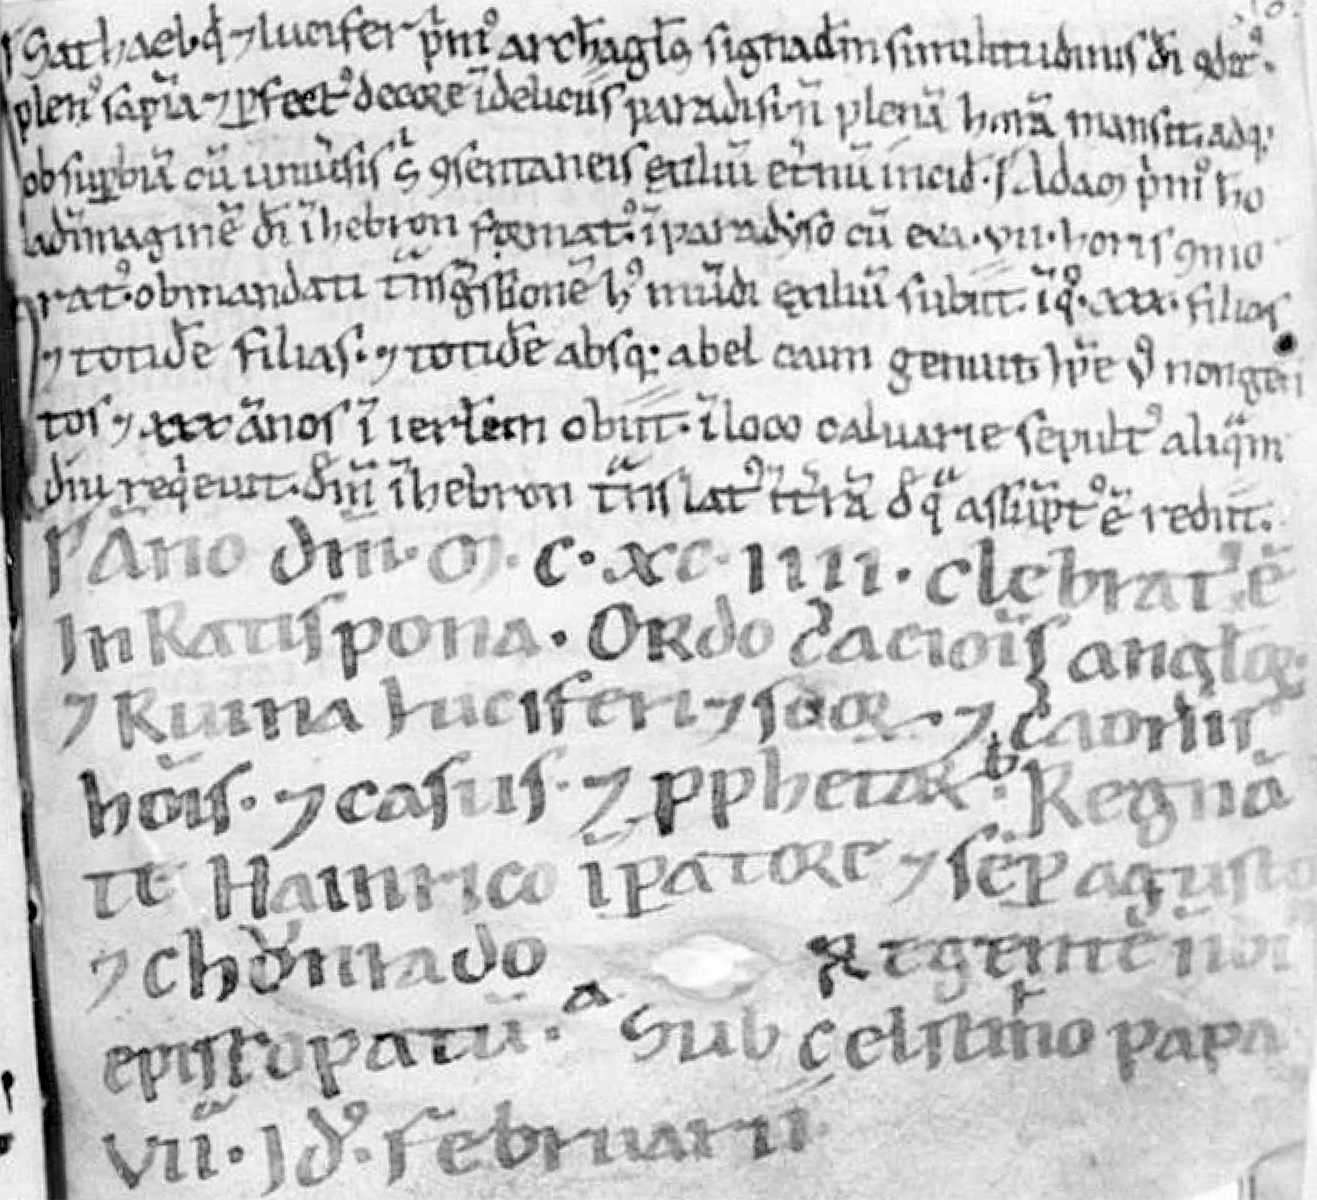 Sathael q̄ ⁊ lucifer p̄mꝰ archāgl̄s signac̄lm similitudinis d̄i ꝯdit.
plenꝰ sapīa ⁊ ꝑfectꝰ decore ī deliciis paradisi ñ plenā horā mansit. adq̨
ob suꝑbiā cū uniūsis s̄ ꝯsentaneis exiliū et̄nū incid̄. Adam p̄mꝰ ho
ad̄ imaginē d̄i ī hebron formatꝰ. ī paradyso cū eva. vii. horis ꝯmo
ratꝰ. ob mandati t̄nsḡssionē hꝰ mūdi exiliū subiit. ī qͦ. xxx. filios
⁊ totidē filias. ⁊ totidē absq; abel caim genuit. ip̄e v̄ nongen
tos ⁊ xxx ānos ī ierl̄em obiit. ī loco caluarie sepultꝰ aliqͣm
diu reqͥeuit. d̄m̄ ī hebron t̄nslatꝰ ī t̄rā d̄ qͣ assūptꝰ ē rediit.
Āno dn̄i. M. C. XC. IIII. clebratꝰ ē
In Ratispona. Ordo c̄aciois anglоꝝ.
⁊ Ruina luciferi ⁊ soꝝ. ⁊ c̄aoīs
hoīs. ⁊ casus. ⁊ ꝓphetaꝝ. Regnā
te Hainrico īpatore ⁊ sēp agusto
⁊ chv̊nrado Regentē ibi
epistopatū. Sub celstino papa
VII. Idꝰ. februarii